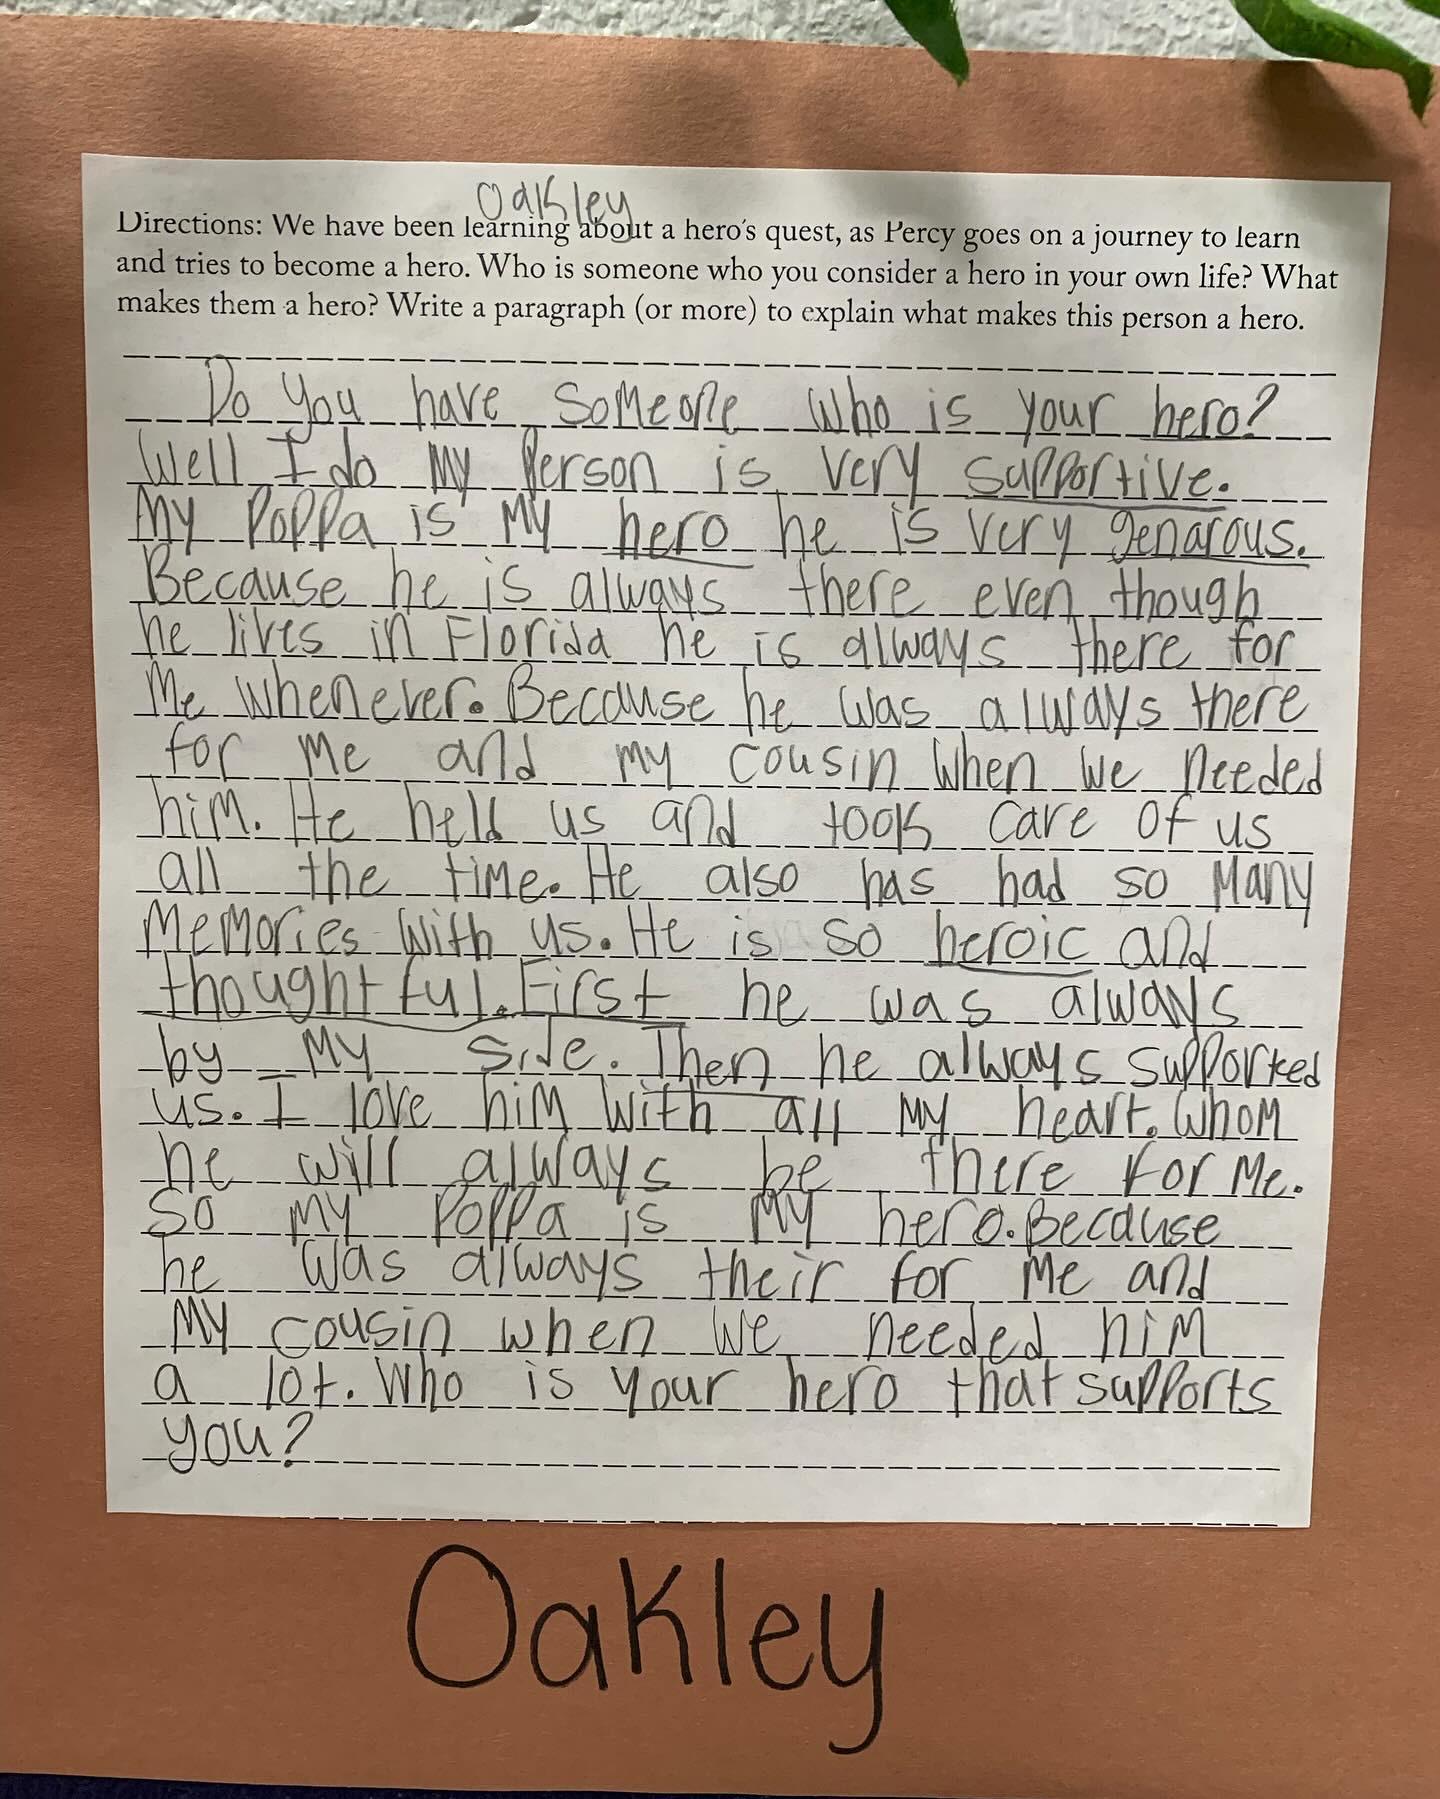 Oakley
Directions: We have been learning about a hero's quest, as Percy goes on a journey to learn
and tries to become a hero. Who is someone who you consider a hero in your own life? What
makes them a hero? Write a paragraph (or more) to explain what makes this person a hero.
Do you have someone who is your hero?
Well I do my person is very supportive.
My Poppa is my hero he is very genarous.
Because he is always there even though
he lives in Florida he is always there for
me whenever. Because he was always there
for me and my cousin when we needed
him. He held us and took care of us
all the time. He also has had so many
memories with us. He is so heroic and
thoughtful. First he was always
by my side. Then he always supported
us. I love him with all my heart. Whom
he will always be there for me.
So my Poppa is my hero. Because
he was always their for me and
my cousin when we needed him
a lot. Who is your hero that supports
you?
Oakley